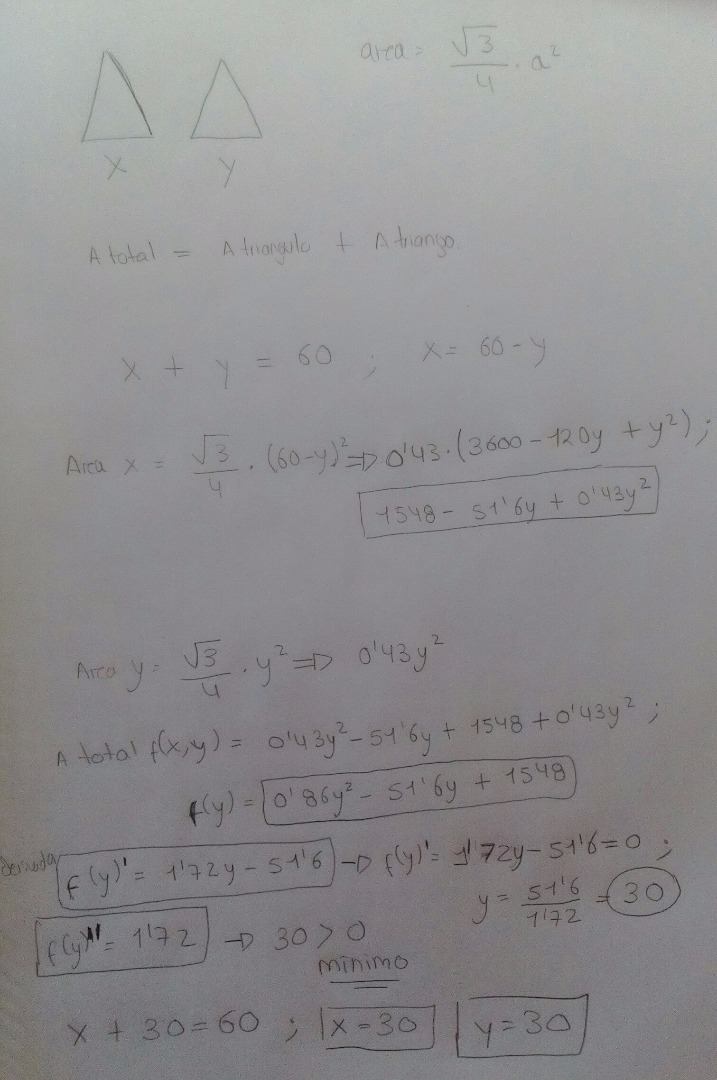 area = √3/4 · a²
x y
A total = A triangulo + A triango.
x + y = 60 ; x = 60 - y
Area x = √3/4 · (60-y)² => 0'43·(3600 - 120y + y²) ;
1548 - 51'6y + 0'43y²
Area y = √3/4 · y² => 0'43y²
A total f(x,y) = 0'43y² - 51'6y + 1548 + 0'43y² ;
f(y) = 0'86y² - 51'6y + 1548
derivada f(y)' = 1'72y - 51'6 -> f(y)' = 1'72y - 51'6 = 0 ;
y = 51'6/1'72 = 30
f(y)'' = 1'72 -> 30 > 0
mínimo
x + 30 = 60 ; x = 30 y = 30